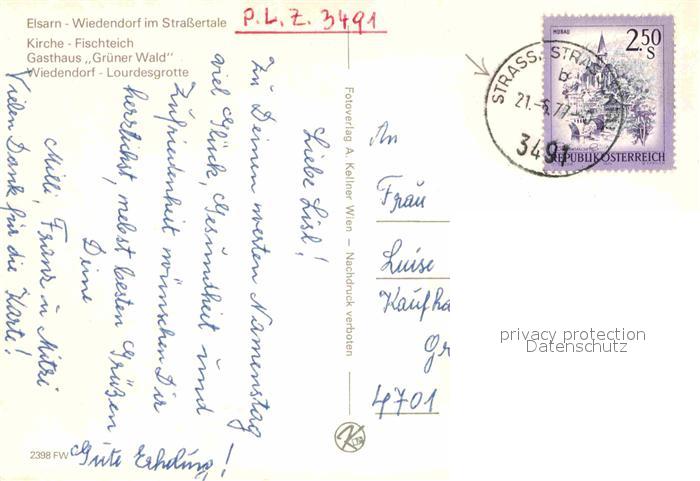 Elsarn - Wiedendorf im Straßertale
Kirche - Fischteich
Gasthaus „Grüner Wald"
Wiedendorf - Lourdesgrotte
P.L.Z. 3491
Liebe Lisl!
Zu Deinem werten Namenstag
viel Glück, Gesundheit und
Zufriedenheit wünschen Dir
herzlichst, nebst besten Grüßen
Deine
Milli, Franz u Mitzi
Vielen Dank für die Karte!
Gute Erholung!
2398 FW
Fotoverlag A. Kellner Wien – Nachdruck verboten
MURAU
2.50
S
REPUBLIK ÖSTERREICH
STRASS, STRA
b
21.-6.77-
3491
An
Frau
Luise
Kaufha
Gr
4701
privacy protection
Datenschutz